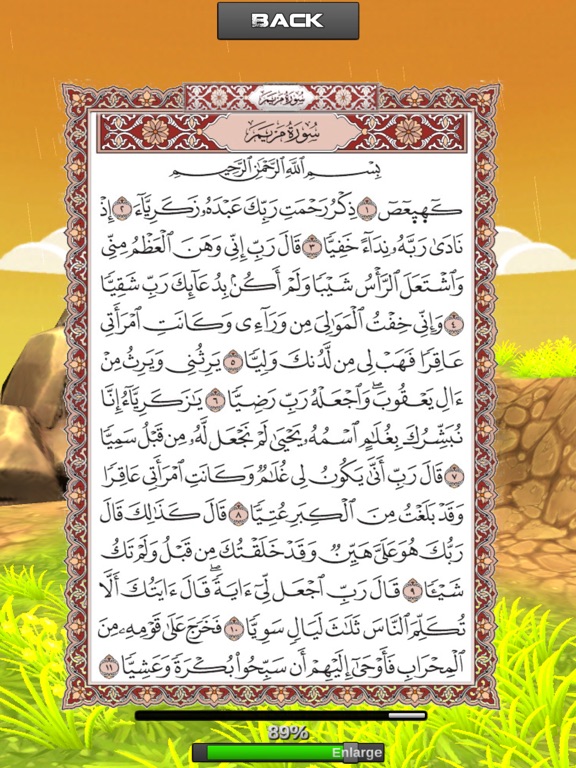 BACK
سورة مريم
سورة مريم
بِسْمِ اللَّهِ الرَّحْمَٰنِ الرَّحِيمِ
كٓهيعٓصٓ ١ ذِكْرُ رَحْمَتِ رَبِّكَ عَبْدَهُۥ زَكَرِيَّآءَ ٢ إِذْ
نَادَىٰ رَبَّهُۥ نِدَآءً خَفِيًّا ٣ قَالَ رَبِّ إِنِّى وَهَنَ ٱلْعَظْمُ مِنِّى
وَٱشْتَعَلَ ٱلرَّأْسُ شَيْبًا وَلَمْ أَكُنۢ بِدُعَآئِكَ رَبِّ شَقِيًّا
٤ وَإِنِّى خِفْتُ ٱلْمَوَٰلِىَ مِن وَرَآءِى وَكَانَتِ ٱمْرَأَتِى
عَاقِرًا فَهَبْ لِى مِن لَّدُنكَ وَلِيًّا ٥ يَرِثُنِى وَيَرِثُ مِنْ
ءَالِ يَعْقُوبَ ۖ وَٱجْعَلْهُ رَبِّ رَضِيًّا ٦ يَٰزَكَرِيَّآءُ إِنَّا
نُبَشِّرُكَ بِغُلَٰمٍ ٱسْمُهُۥ يَحْيَىٰ لَمْ نَجْعَل لَّهُۥ مِن قَبْلُ سَمِيًّا
٧ قَالَ رَبِّ أَنَّىٰ يَكُونُ لِى غُلَٰمٌ وَكَانَتِ ٱمْرَأَتِى عَاقِرًا
وَقَدْ بَلَغْتُ مِنَ ٱلْكِبَرِ عِتِيًّا ٨ قَالَ كَذَٰلِكَ قَالَ
رَبُّكَ هُوَ عَلَىَّ هَيِّنٌ وَقَدْ خَلَقْتُكَ مِن قَبْلُ وَلَمْ تَكُ
شَيْـًٔا ٩ قَالَ رَبِّ ٱجْعَل لِّىٓ ءَايَةً ۚ قَالَ ءَايَتُكَ أَلَّا
تُكَلِّمَ ٱلنَّاسَ ثَلَٰثَ لَيَالٍ سَوِيًّا ١٠ فَخَرَجَ عَلَىٰ قَوْمِهِۦ مِنَ
ٱلْمِحْرَابِ فَأَوْحَىٰٓ إِلَيْهِمْ أَن سَبِّحُوا۟ بُكْرَةً وَعَشِيًّا ١١
89%
Enlarge